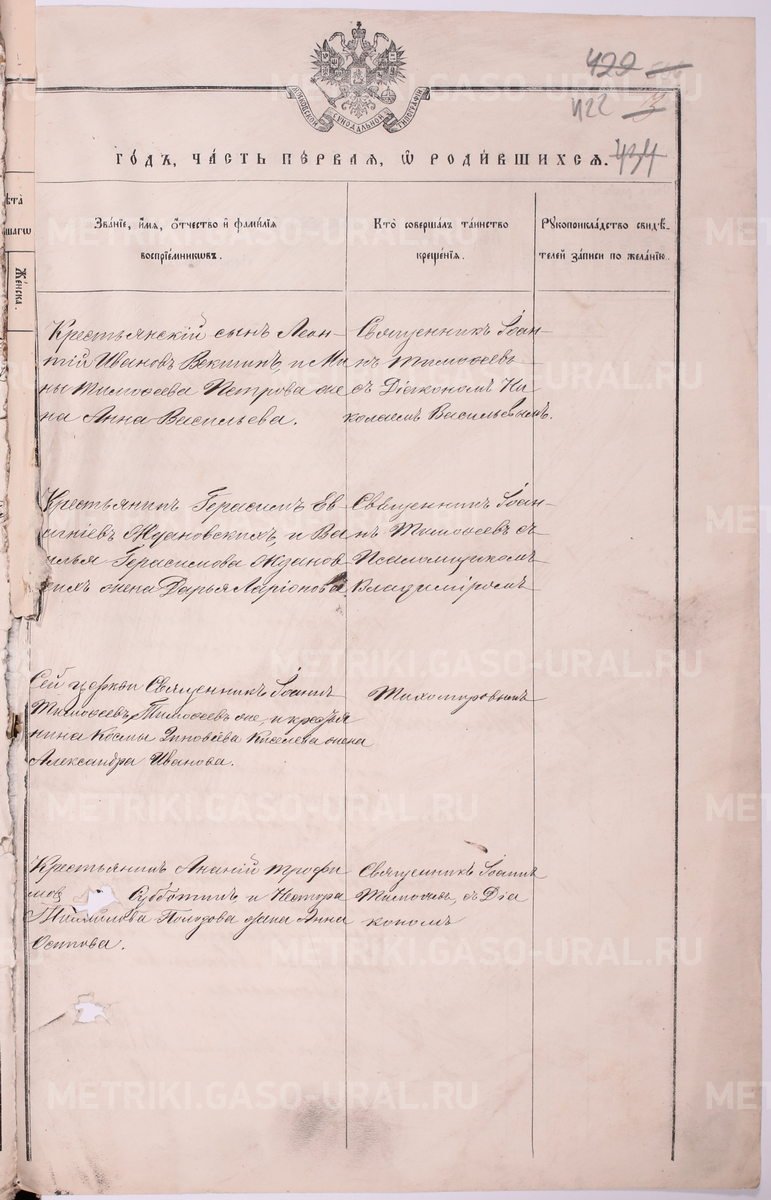 422
422
434
МОСКОВСКОЙ СѴНОДАЛЬНОЙ ТИПОГРАФІИ
ГОДЪ, ЧАСТЬ ПЕРВАЯ, Ѡ РОДИВШИХСЯ.
Званіе, имя, отчество и фамилія
воспріемниковъ.
Кто совершалъ таинство
крещенія.
Рукоприкладство свидѣ-
телей записи по желанію.
Женска.
Крестьянскій сынъ Леон-
тій Ивановъ Векшинъ, и Ми
ны Тимофеева Петрова же
на Анна Васильева.
Священникъ Іоан-
нъ Тимофеевъ
съ Діакономъ Ни
колаемъ Васильевымъ.
Крестьянинъ Герасимъ Ев
Ждановскихъ, и Ва
Герасимова Жданов
жена Дарья Ларіонова
Священникъ Іоан-
нъ Тимофеевъ съ
Псаломщикомъ
Владиміромъ
Сей церкви Священникъ Іоаннъ
Тимофеевъ Тимофеевъ же, и крестья
нина Космы Киселева жена
Александра Иванова.
Тихомировымъ
Крестьянинъ Ананій Трофи
мов Субботинъ и Нестора
жена Анна
Осипова.
Священникъ Іоаннъ
Тимофеевъ, съ Діа
кономъ
METRIKI.GASO-URAL.RU